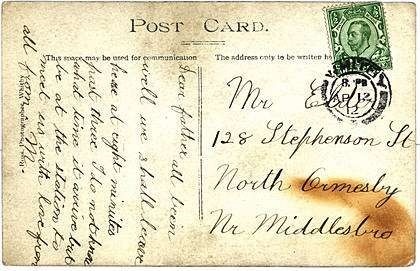 POST CARD.
This space may be used for communication
The address only to be written here
Dear father all been
well we shall leave
here at eight minutes
past three I do not know
what time it arrive but
be at the station to
meet us with love from
all from
Mr
128 Stephenson St
North Ormesby
Nr Middlesbro